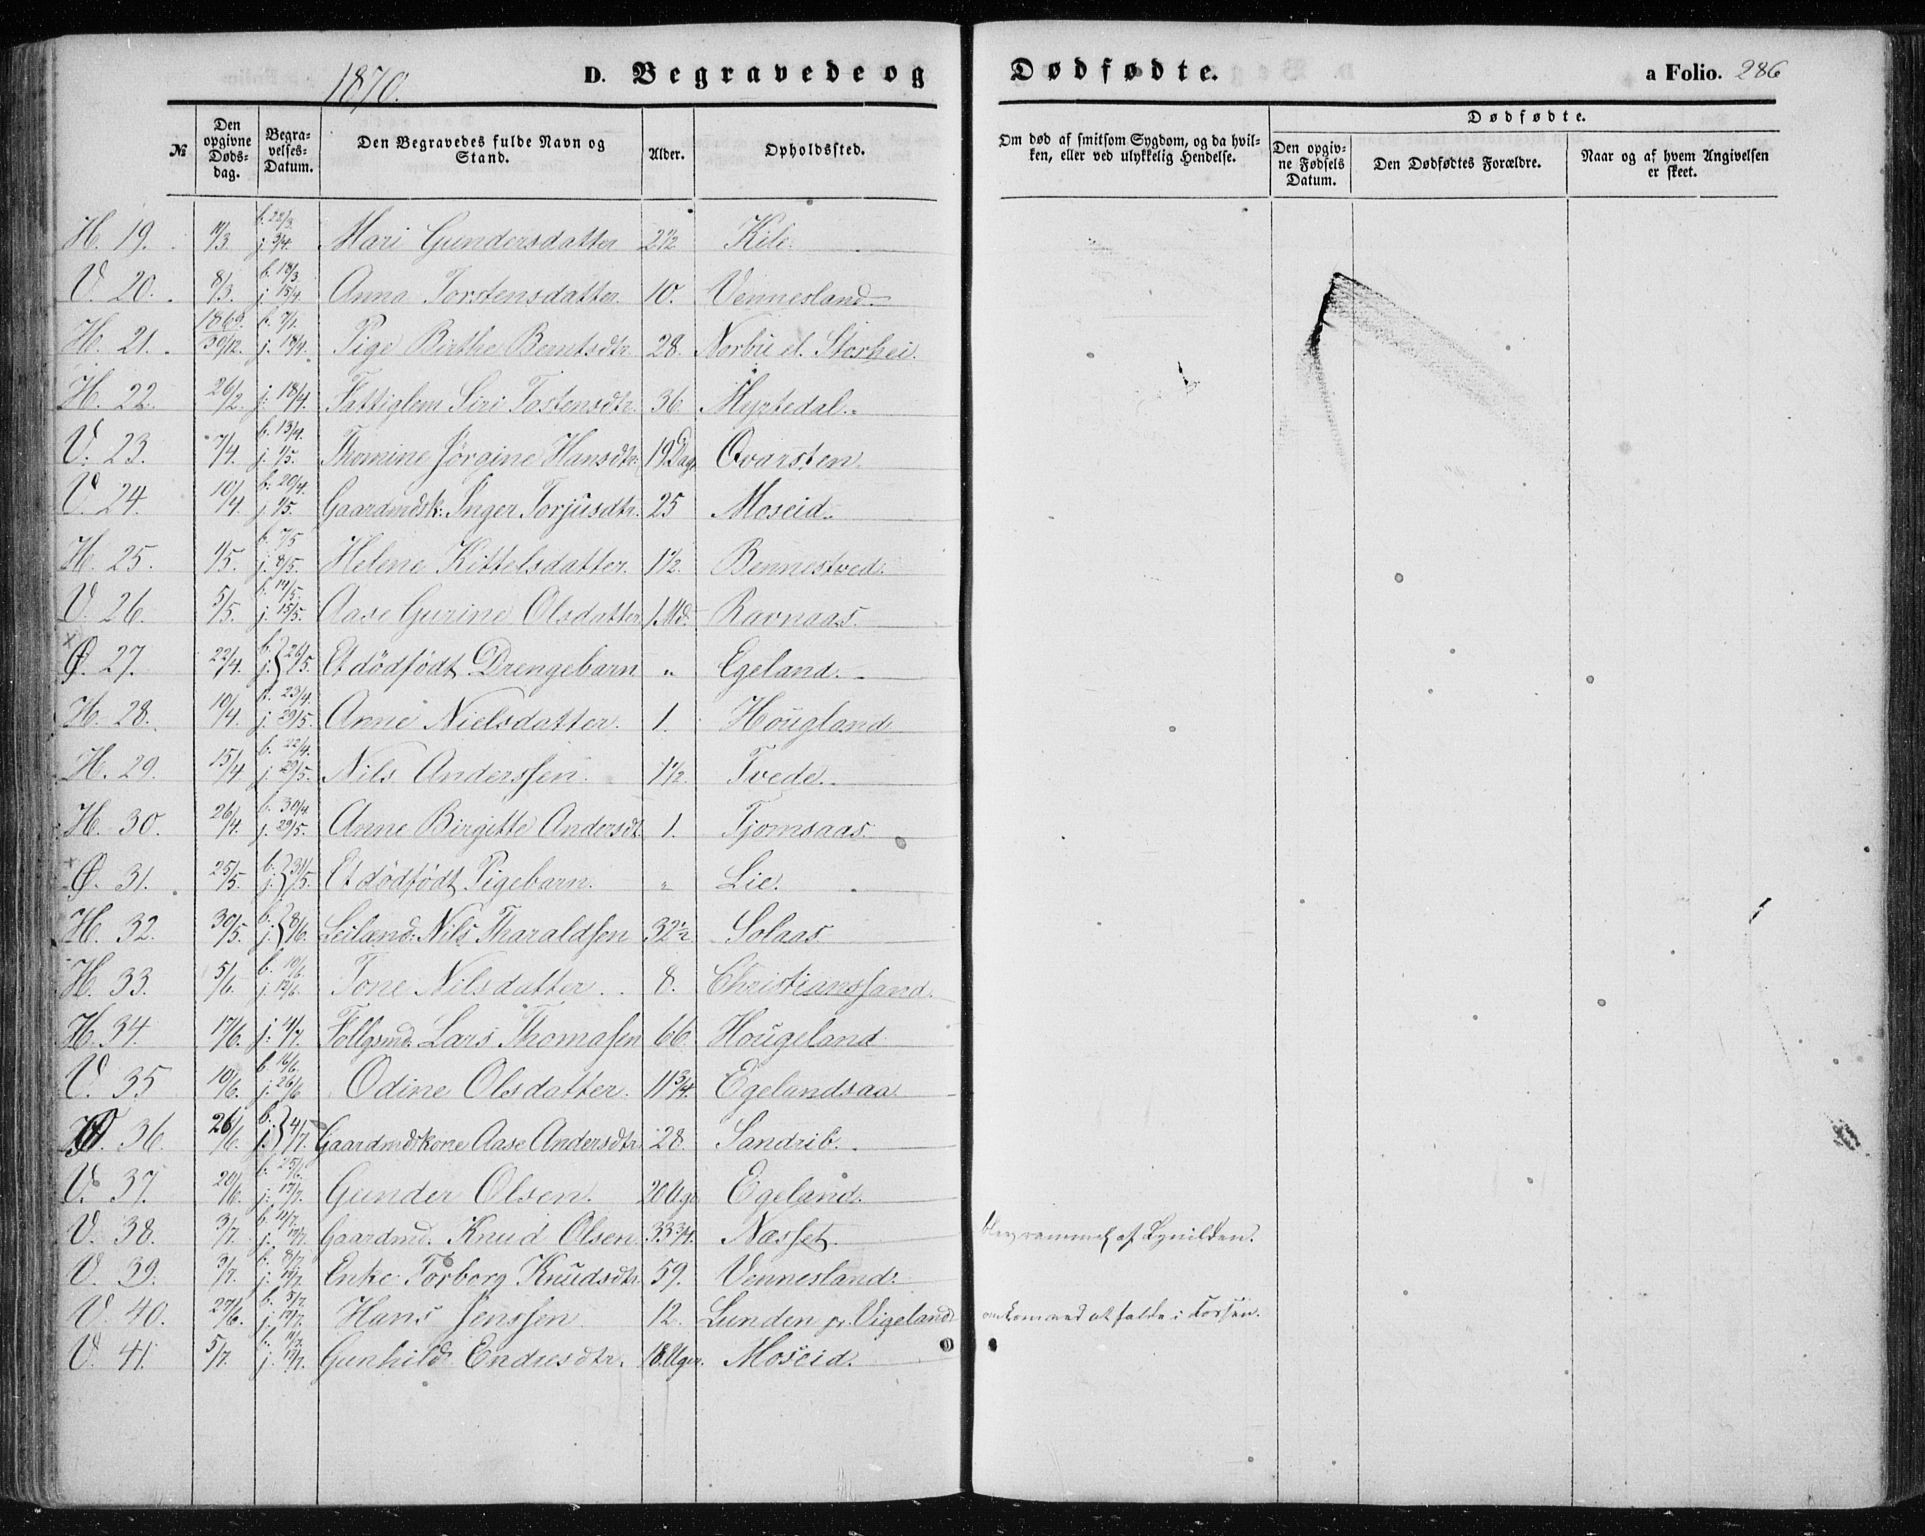 1870.
D. Begravede og Dødfødte.
a Folio. 286
№
Den opgivne Døds-dag.
Begra-velses-Datum.
Den Begravedes fulde Navn og Stand.
Alder.
Opholdssted.
Om død af smitsom Sygdom, og da hvil-ken, eller ved ulykkelig Hendelse.
Dødfødte.
Den opgiv-ne Fødsels Datum.
Den Dødfødtes Forældre.
Naar og af hvem Angivelsen er skeet.
H. 19. b. 22/3. j. 3/4. Mari Gundersdatter 2 1/2 Kile.
V. 20. 8/3. b. 18/3. j. 15/4. Anna Torstensdatter. 10. Vennesland
H. 21. 1869 30/12. b. 7/1. j. 18/4. Pige Birthe Berntsdtr. 28. Norbü et. Storhei.
H. 22. 26/2. j. 18/4. Fattiglem Siri Tostensdtr. 36
V. 23. 7/4. b. 13/4. j. 1/5. Thomine Jörgine Hansdtr. 19 Dag. Qvarsten.
V. 24. 10/4. b. 20/4. j. 1/5. Gaardmdsk: Inger Torjusdtr. 25 Moseid.
H. 25. 1/5. b. 7/5 j. 8/5. Helene Kittelsdatter. 1 1/2. Bennestved.
V. 26. 5/5. b. 14/5. j. 15/5. Aase Gurine Olsdatter 1 Md. Ravnaas.
Ø. 27. 22/4. b. j. } 26/5. Et dödfödt Drengebarn „ Egeland.
H. 28. 10/4. b. 23/4. j. 29/5. Anne Nielsdatter. 1. Hougland
H. 29. 15/4. b. 22/4. j. 29/5. Nils Anderssen. 1 1/2. Tvede.
H. 30. 26/4. b. 30/4. j. 29/5. Anne Birgitte Andersdt. 1. Tjomsaas.
Ø. 31. 25/5. b. j. } 31/5. Et dödfödt Pigebarn. „ Lie.
H. 32. 30/5. b. j. } 8/6. Leilænd. Nils Tharaldsen 32 1/2. Solaas
H. 33. 5/6. b. 10/6. j. 12/6. Tone Nilsdatter. 8. Christianssand.
H. 34. 17/6. j. 4/7. Follgsmd. Lars Thomassen 66 Hougeland
V. 35 10/6. b. 16/6. j. 26/6 Odine Olsdatter. 11 3/4. Egelandsaa
Ø. 36. 26/6. b. j. } 4/7. Gaardmdskone Aase Andersdtr. 28. Sandrib.
V. 37. 20/6. b. 25/6. j. 17/7. Gunder Olsen. 20 Uger Egeland.
V. 38. 3/7. b. 11/7. j. 17/7. Gaardmd. Knud Olsen 33 3/4. Næsset. blev rammet af Lynilden.
V. 39. 3/7. b. 8/7. j. 17/7. Enke Torborg Knüdsdtr. 59. Vennesland.
V. 40. 27/6. b. 5/7. j. 17/7. Hans Jenssen 12. Lunden pr. Vigeland omkom ved at falde i Fossen.
V. 41. 5/7. b. 11/7. j. 17/7. Gunhild Endresdtr. 18 Uger. Moseid.